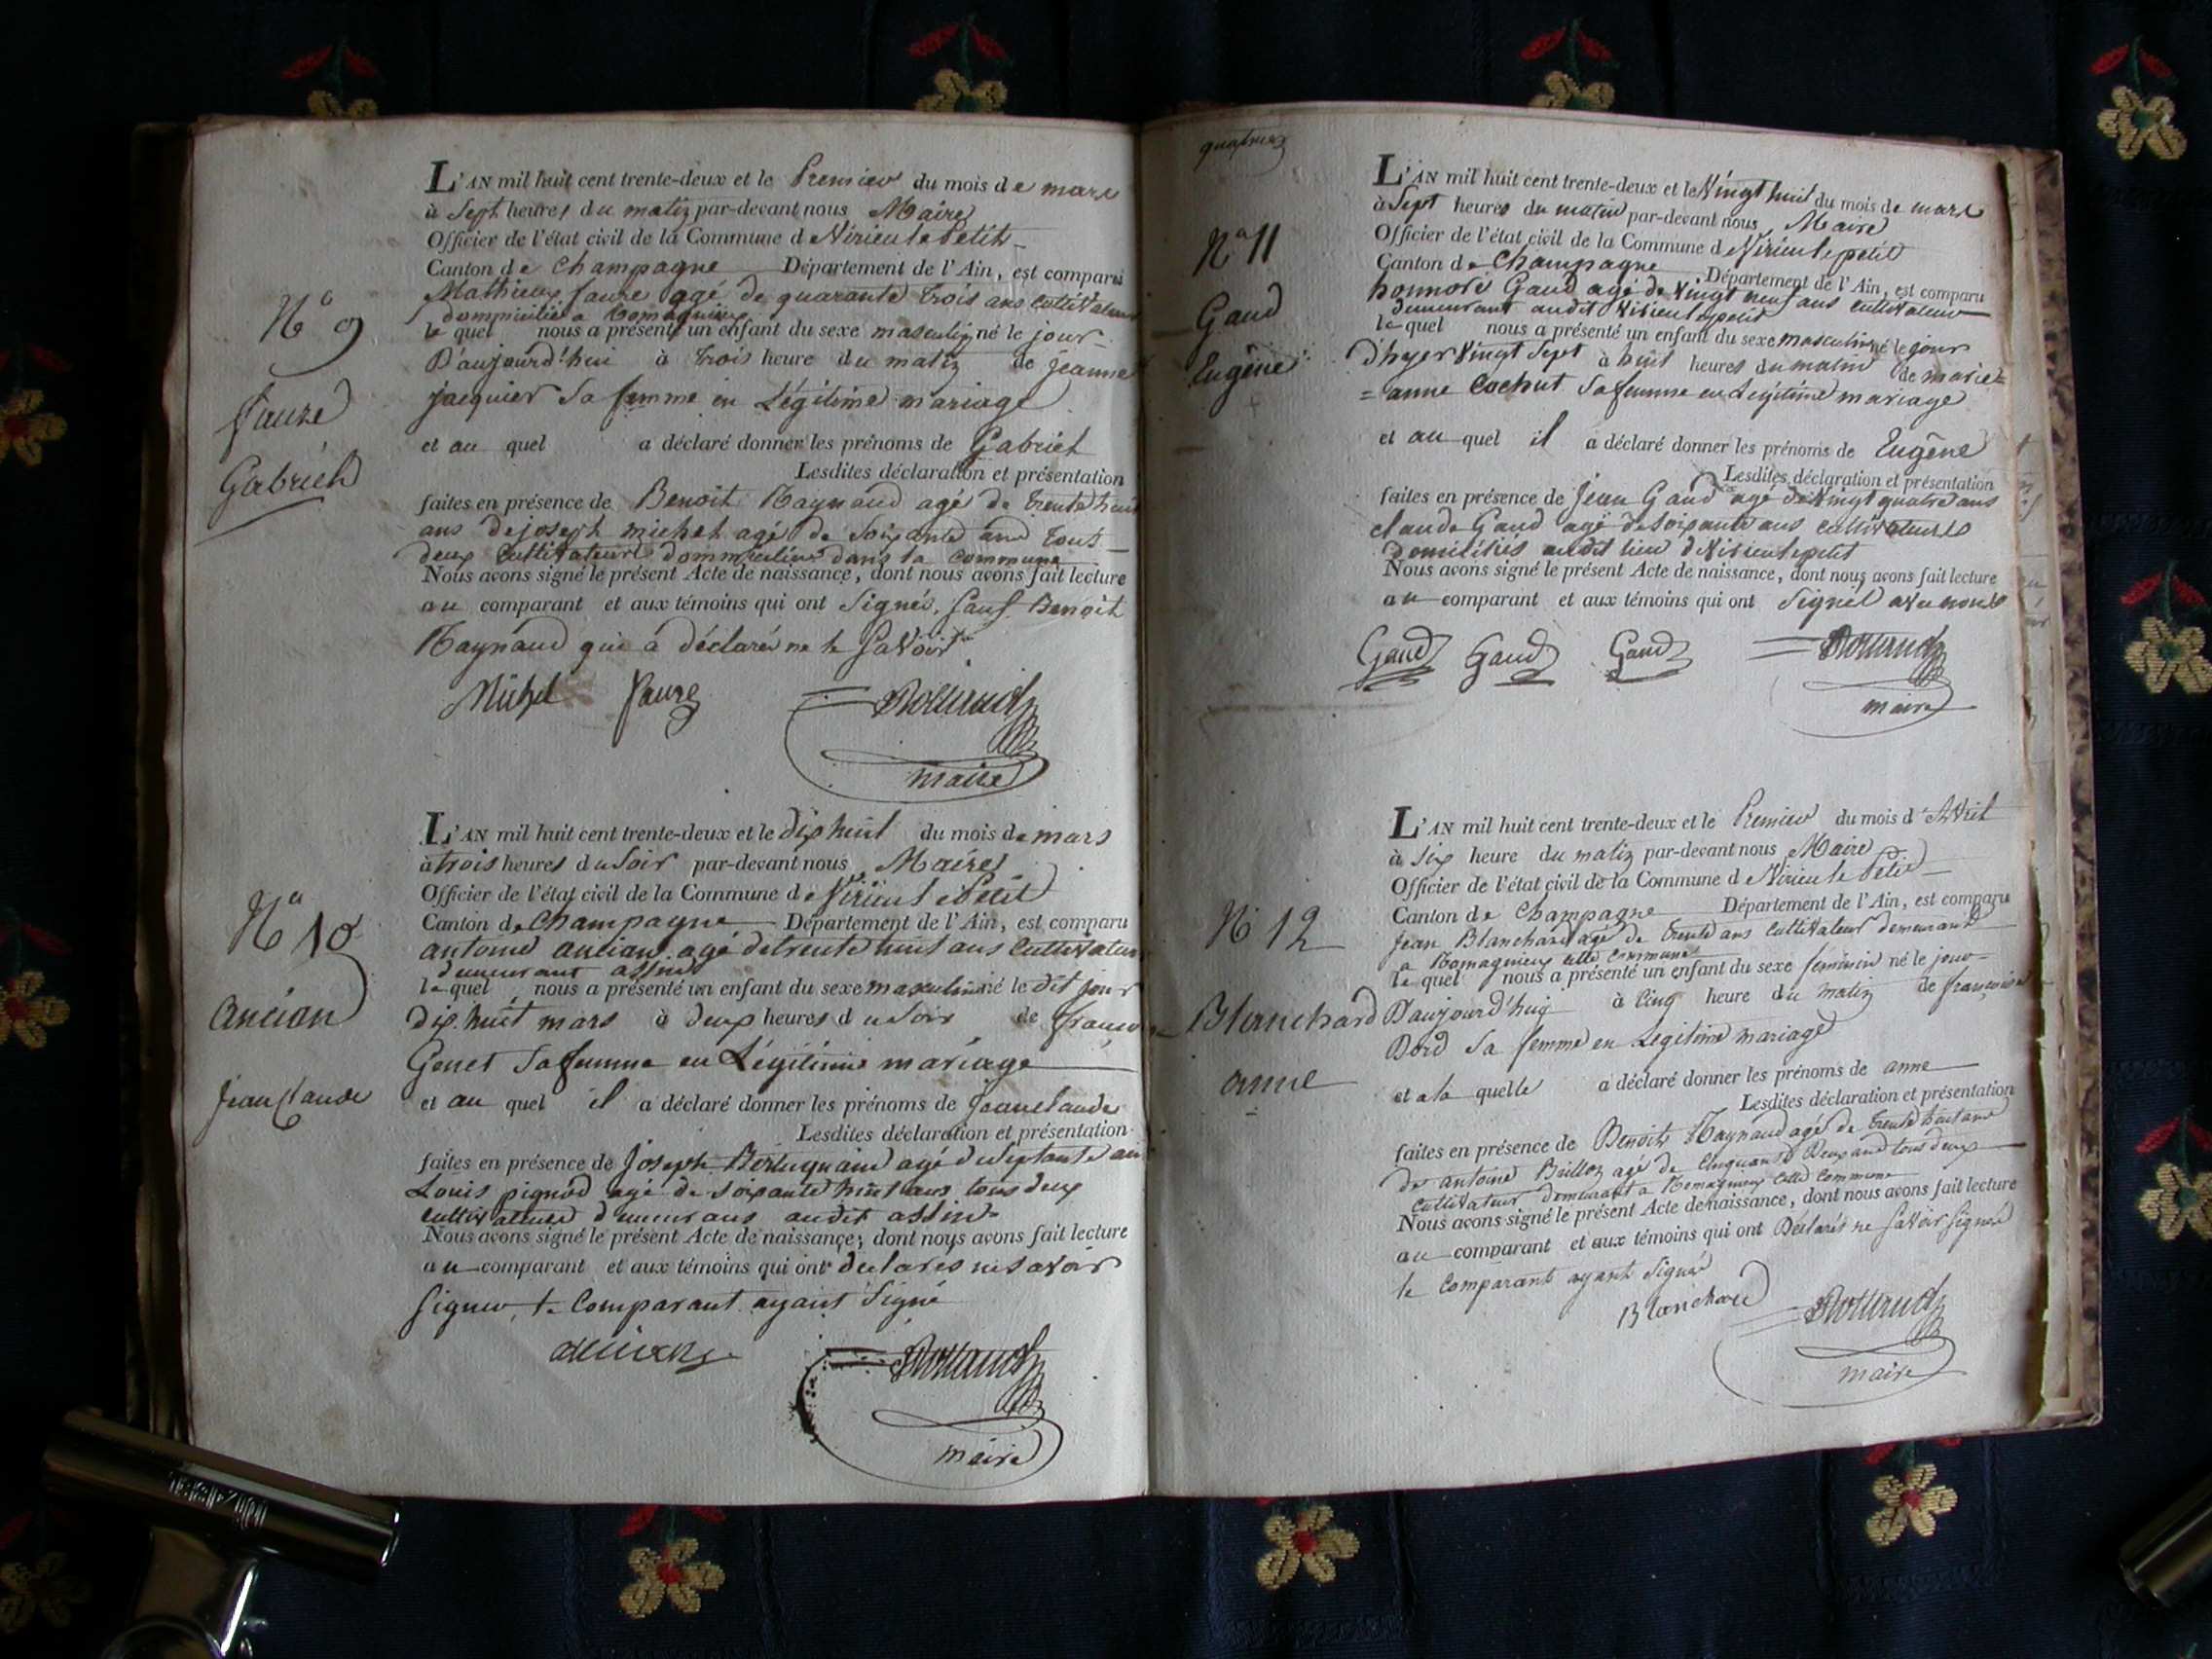 N° 9
faure
Gabriel
L'AN mil huit cent trente-deux et le Premier du mois de mars
à Sept heures du matin par-devant nous Maire
Officier de l'état civil de la Commune de Virieu le Petit
Canton de Champagne Département de l'Ain, est comparu
Mathieu faure agé de quarante trois ans cultivateur
le quel nous a présenté un enfant du sexe masculin né le jour
D'aujourd'hui à trois heure du matin de jeanne
jacquier Sa femme en Légitime mariage
et au quel a déclaré donner les prénoms de Gabriel
Lesdites déclaration et présentation
faites en présence de Benoit Raynaud agé de trente huit
ans de joseph michel agé de Soixante ans tous
deux Cultivateurs dans la commune
Nous avons signé le présent Acte de naissance, dont nous avons fait lecture
au comparant et aux témoins qui ont Signés, Sauf Benoit
Raynaud qui a déclaré ne le Savoir
Michel faure
maire
N° 10
ancian
jean Claude
L'AN mil huit cent trente-deux et le dix huit du mois de mars
à trois heures du Soir par-devant nous Maire
Officier de l'état civil de la Commune de Virieu le Petit
Canton de Champagne Département de l'Ain, est comparu
antoine ancian agé de trente huit ans Cultivateur
demeurant assin
le quel nous a présenté un enfant du sexe masculin né le dit jour
dix huit mars à deux heures du Soir de
Genet Sa femme en Légitime mariage
et au quel il a déclaré donner les prénoms de jean claude
Lesdites déclaration et présentation
faites en présence de Joseph agé de septante
Louis pignod agé de Soixante huit ans tous deux
cultivateurs demeurans audit assin
Nous avons signé le présent Acte de naissance, dont nous avons fait lecture
au comparant et aux témoins qui ont declares ne savoir
Signer le Comparant ayant Signé
ancian
maire
N° 11
Gaud
Eugène
L'AN mil huit cent trente-deux et le Vingt huit du mois de mars
à Sept heures du matin par-devant nous Maire
Officier de l'état civil de la Commune de Virieu le petit
Canton de Champagne Département de l'Ain, est comparu
honnoré Gaud agé de Vingt neuf ans cultivateur
demeurant audit Virieu le petit
le quel nous a présenté un enfant du sexe masculin né le jour
d'hyer Vingt Sept à huit heures du matin de marie=
=anne Cochut Sa femme en Légitime mariage
et au quel il a déclaré donner les prénoms de Eugène
Lesdites déclaration et présentation
faites en présence de Jean Gaud agé de Vingt quatre ans
claude Gaud agé de Soixante ans cultivateurs
Domiciliés audit lieu de Virieu le petit
Nous avons signé le présent Acte de naissance, dont nous avons fait lecture
au comparant et aux témoins qui ont Signé avec nous
Gaud Gaud Gaud
maire
N° 12
Blanchard
anne
L'AN mil huit cent trente-deux et le Premier du mois d'Avril
à Six heure du matin par-devant nous Maire
Officier de l'état civil de la Commune de Virieu le Petit
Canton de Champagne Département de l'Ain, est comparu
Jean Blanchard agé de trente ans Cultivateur demeurant
a Romagnieux cette commune
le quel nous a présenté un enfant du sexe feminin né le jour
D'aujourd'huy à Cinq heure du matin de françoise
Bord Sa femme en Legitime mariage
et a la quelle a déclaré donner les prénoms de anne
Lesdites déclaration et présentation
faites en présence de Benoit Raynaud agé de trente huit ans
de antoine Brillon agé de Cinquante Deux ans tous deux
Cultivateur demeurant a Romagnieux cette Commune
Nous avons signé le présent Acte de naissance, dont nous avons fait lecture
au comparant et aux témoins qui ont Déclarés ne Savoir Signer
le Comparant ayant Signé
Blanchard
maire